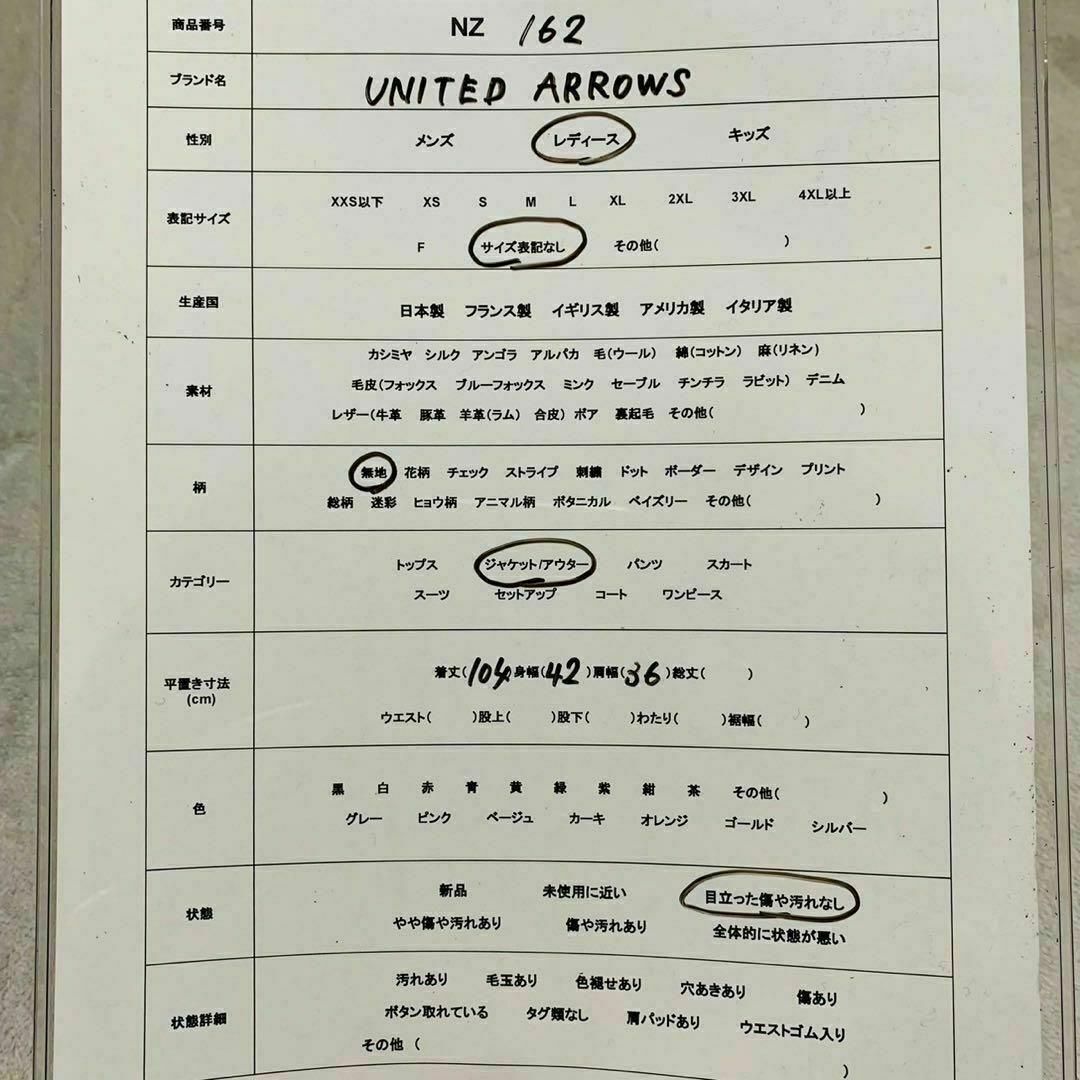 商品番号 NZ 162
ブランド名 UNITED ARROWS
性別 メンズ レディース キッズ
表記サイズ XXS以下 XS S M L XL 2XL 3XL 4XL以上
F サイズ表記なし その他( )
生産国 日本製 フランス製 イギリス製 アメリカ製 イタリア製
カシミヤ シルク アンゴラ アルパカ 毛(ウール) 綿(コットン) 麻(リネン)
素材 毛皮(フォックス ブルーフォックス ミンク セーブル チンチラ ラビット) デニム
レザー(牛革 豚革 羊革(ラム) 合皮) ボア 裏起毛 その他( )
柄 無地 花柄 チェック ストライプ 刺繍 ドット ボーダー デザイン プリント
総柄 迷彩 ヒョウ柄 アニマル柄 ボタニカル ペイズリー その他( )
カテゴリー トップス ジャケット/アウター パンツ スカート
スーツ セットアップ コート ワンピース
平置き寸法 着丈(104 身幅(42 )肩幅(36 )総丈( )
(cm) ウエスト( )股上( )股下( )わたり( )裾幅( )
色 黒 白 赤 青 黄 緑 紫 紺 茶 その他( )
グレー ピンク ベージュ カーキ オレンジ ゴールド シルバー
状態 新品 未使用に近い 目立った傷や汚れなし
やや傷や汚れあり 傷や汚れあり 全体的に状態が悪い
汚れあり 毛玉あり 色褪せあり 穴あきあり 傷あり
状態詳細 ボタン取れている タグ類なし 肩パッドあり ウエストゴム入り
その他 ( )